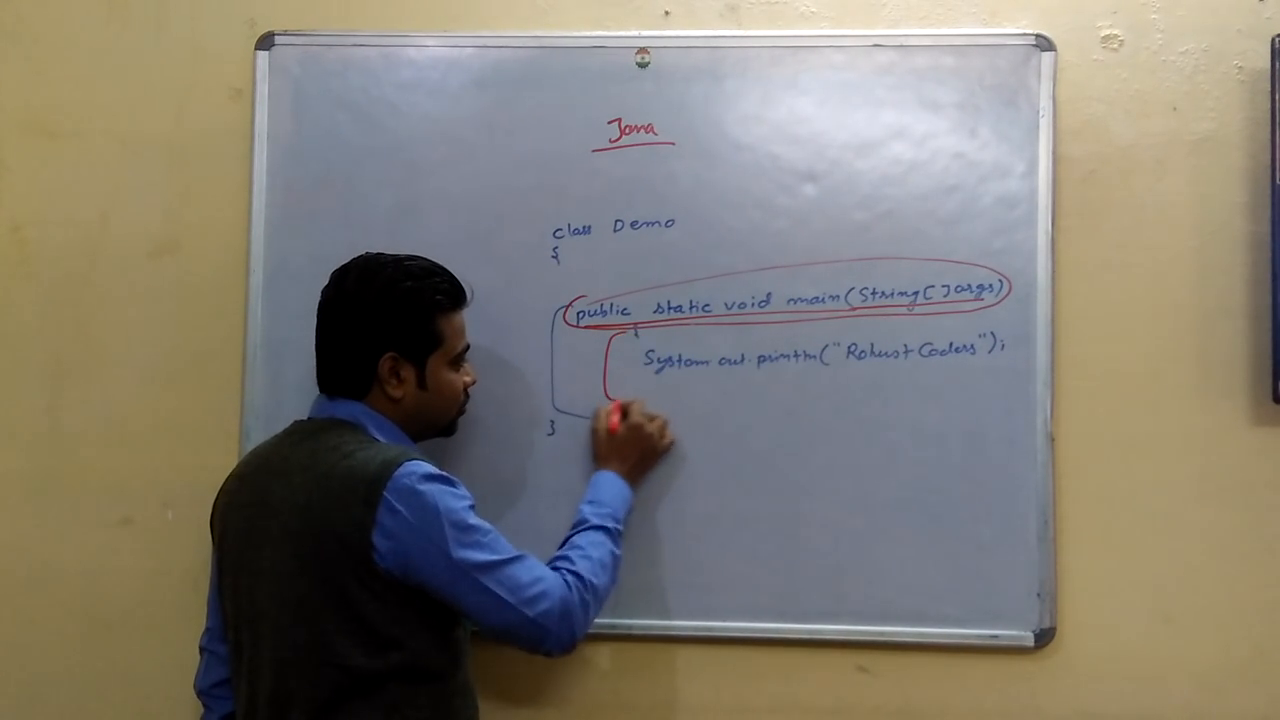 Java
class Demo
{
public static void main(String[] args)
{
System.out.println("Robust Coders");
}